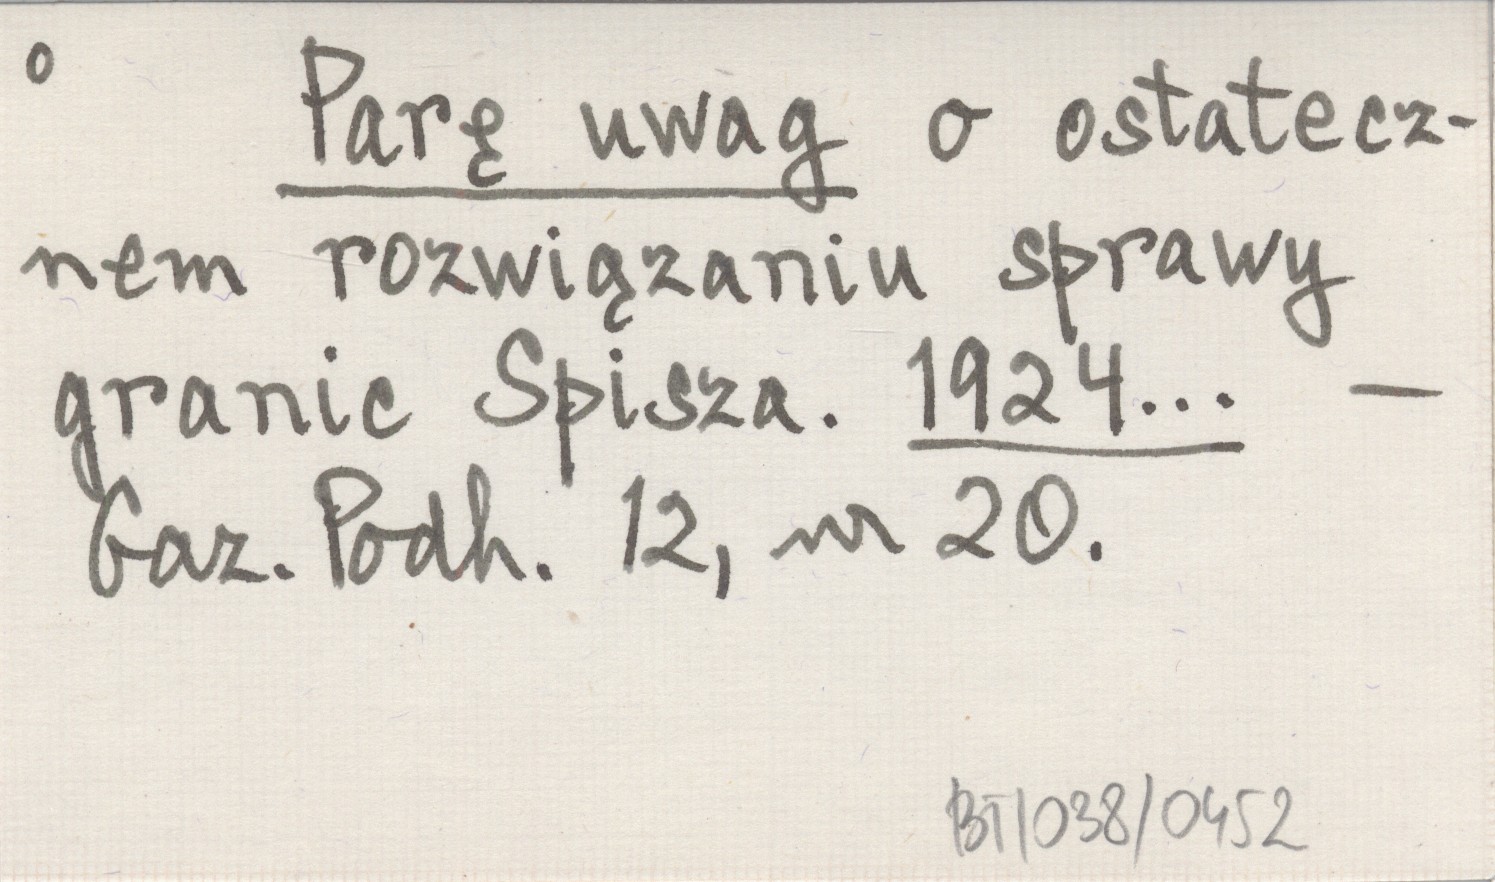 o
Parę uwag o ostatecz-
nem rozwiązaniu sprawy
granic Spisza. 1924... —
Gaz. Podh. 12, nr 20.
BT/038/0452